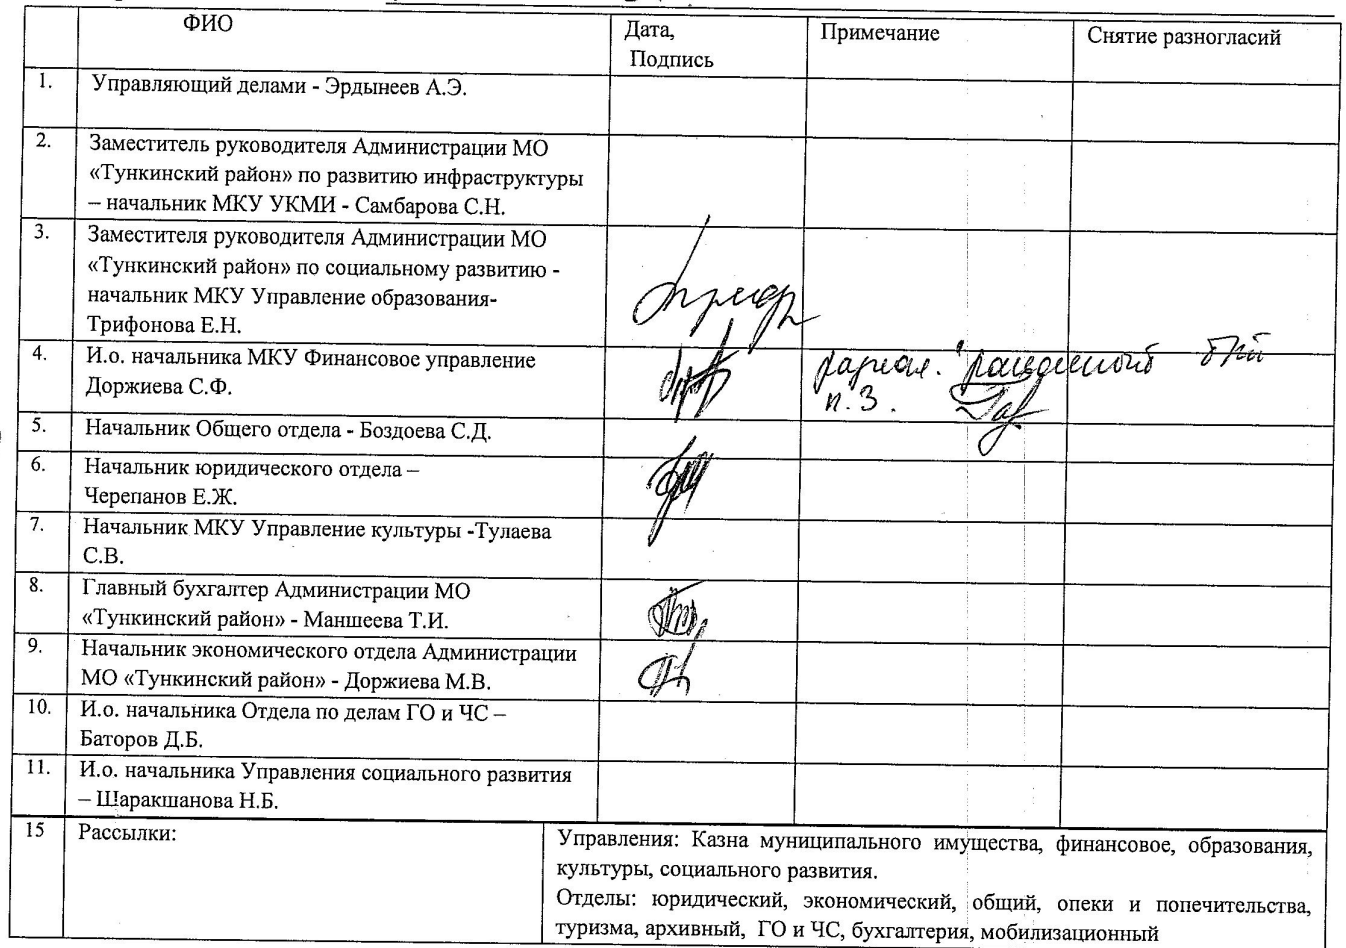 ФИО
Дата,
Подпись
Примечание
Снятие разногласий
1.
Управляющий делами - Эрдынеев А.Э.
2.
Заместитель руководителя Администрации МО
«Тункинский район» по развитию инфраструктуры
– начальник МКУ УКМИ - Самбарова С.Н.
3.
Заместителя руководителя Администрации МО
«Тункинский район» по социальному развитию -
начальник МКУ Управление образования-
Трифонова Е.Н.
4.
И.о. начальника МКУ Финансовое управление
Доржиева С.Ф.
п.3.
5.
Начальник Общего отдела - Боздоева С.Д.
6.
Начальник юридического отдела –
Черепанов Е.Ж.
7.
Начальник МКУ Управление культуры -Тулаева
С.В.
8.
Главный бухгалтер Администрации МО
«Тункинский район» - Маншеева Т.И.
9.
Начальник экономического отдела Администрации
МО «Тункинский район» - Доржиева М.В.
10.
И.о. начальника Отдела по делам ГО и ЧС –
Баторов Д.Б.
11.
И.о. начальника Управления социального развития
– Шаракшанова Н.Б.
15
Рассылки:
Управления: Казна муниципального имущества, финансовое, образования,
культуры, социального развития.
Отделы: юридический, экономический, общий, опеки и попечительства,
туризма, архивный, ГО и ЧС, бухгалтерия, мобилизационный